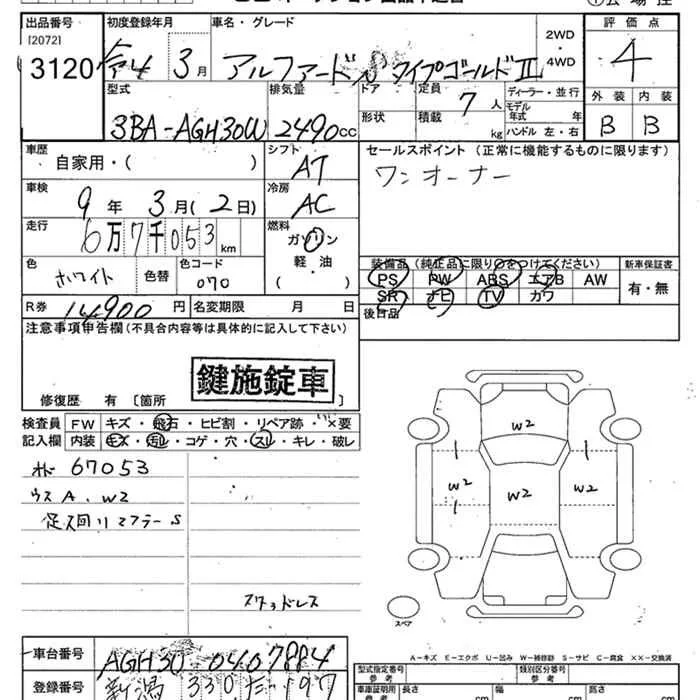 出品番号 初度登録年月 車名・グレード 評価点
[2072]
3120 令4 3月 アルファード タイプゴールドⅡ 2WD・4WD 4
型式 排気量 ドア 定員 7人 ディーラー・並行 外装 内装
モデル年式 年
3BA-AGH30W 2490cc 形状 積載 kg ハンドル 左・右 B B
車歴 自家用・( ) シフト AT セールスポイント (正常に機能するものに限ります)
ワンオーナー
車検 9年 3月(2日) 冷房 AC
走行 6万7千053km 燃料 ガソリン・軽・油 ( )
装備品 (純正品に限り○をつけてください) 新車保証書
色 ホワイト 色替 色コード 070 PS PW ABS エアB AW 有・無
SR ナビ TV カワ
R券 14900円 名変期限 月 日 後日品
注意事項申告欄(不具合内容等は具体的に記入して下さい)
鍵施錠車
修復歴 有 [箇所
検査員 FW キズ・飛石・ヒビ割・リペア跡・×要
記入欄 内装 キズ・汚レ・コゲ・穴・スレ・キレ・破レ
67053
ウス A、W2
足ス回リ マフラーS
スタッドレス
W2
W2 W2 W2
スペア
A-キズ E-エクボ U-凹み W-補修跡 S-サビ C-腐食 ××-交換済
車台番号 AGH30 0407884 型式指定番号 参考 類別区分番号 参考
登録番号 新潟 330 197 車庫証明用 参考 長さ cm 幅 cm 高さ cm